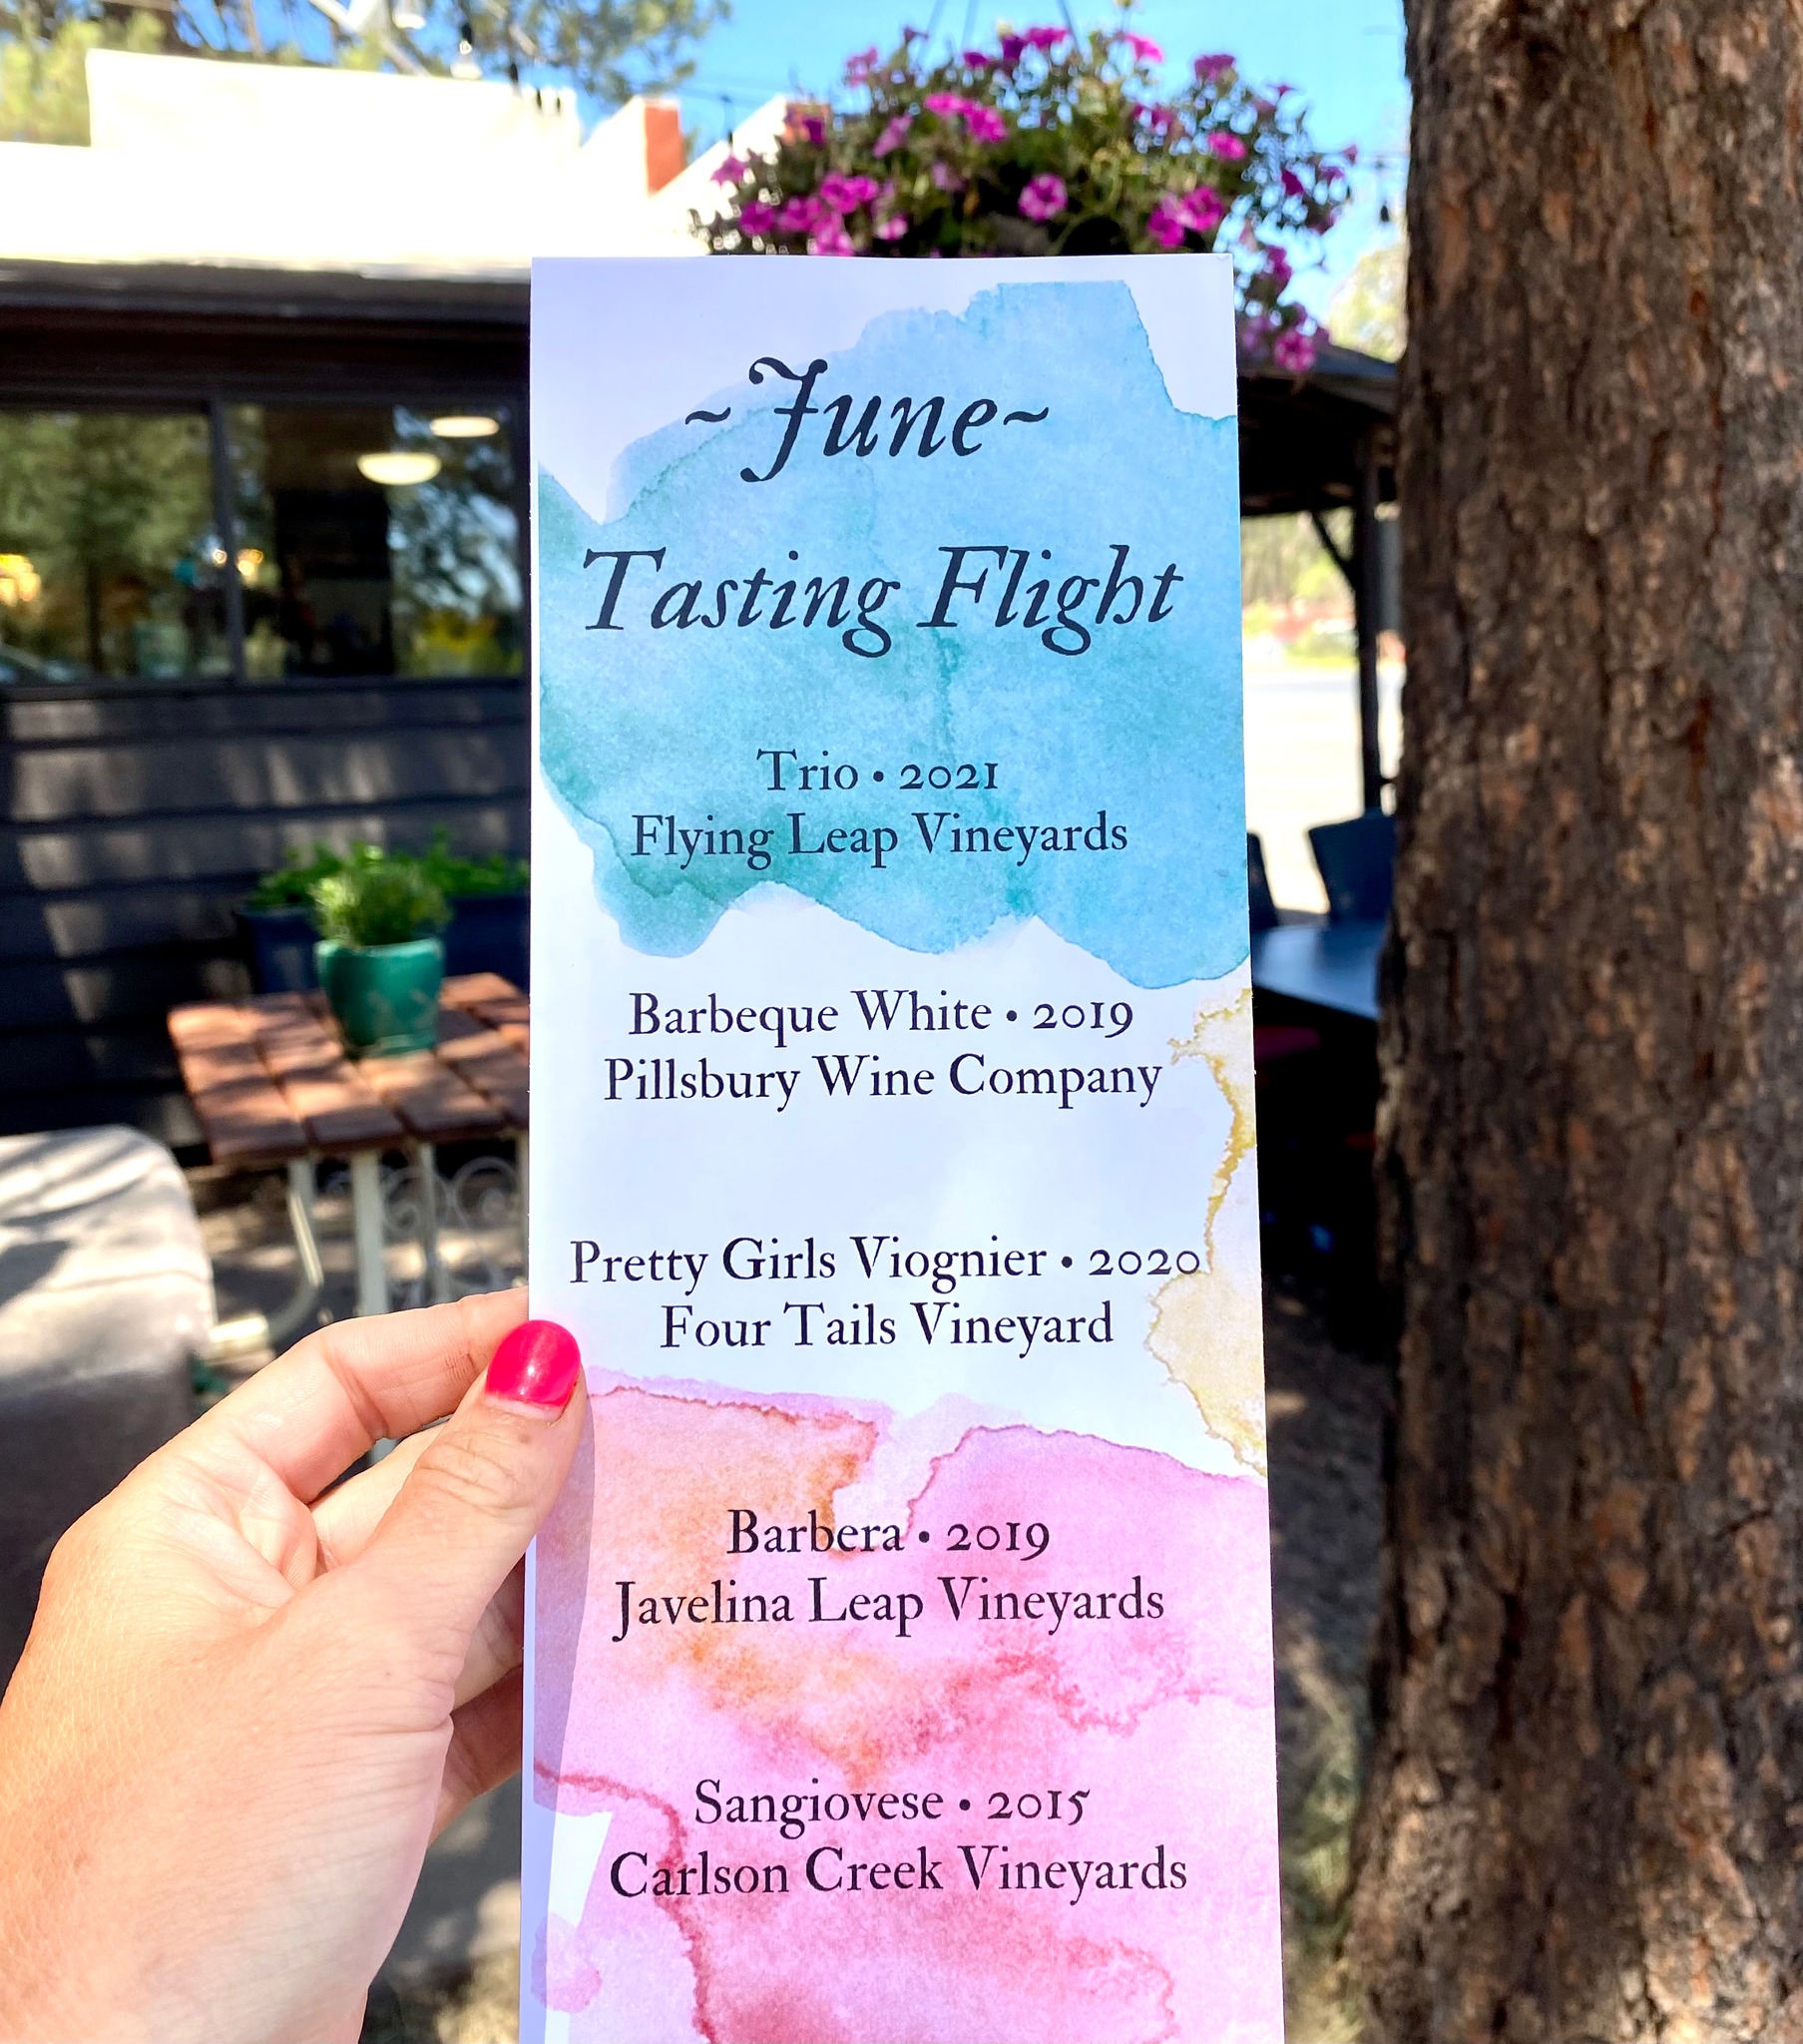 ~June~
Tasting Flight
Trio • 2021
Flying Leap Vineyards
Barbeque White • 2019
Pillsbury Wine Company
Pretty Girls Viognier • 2020
Four Tails Vineyard
Barbera • 2019
Javelina Leap Vineyards
Sangiovese • 2015
Carlson Creek Vineyards